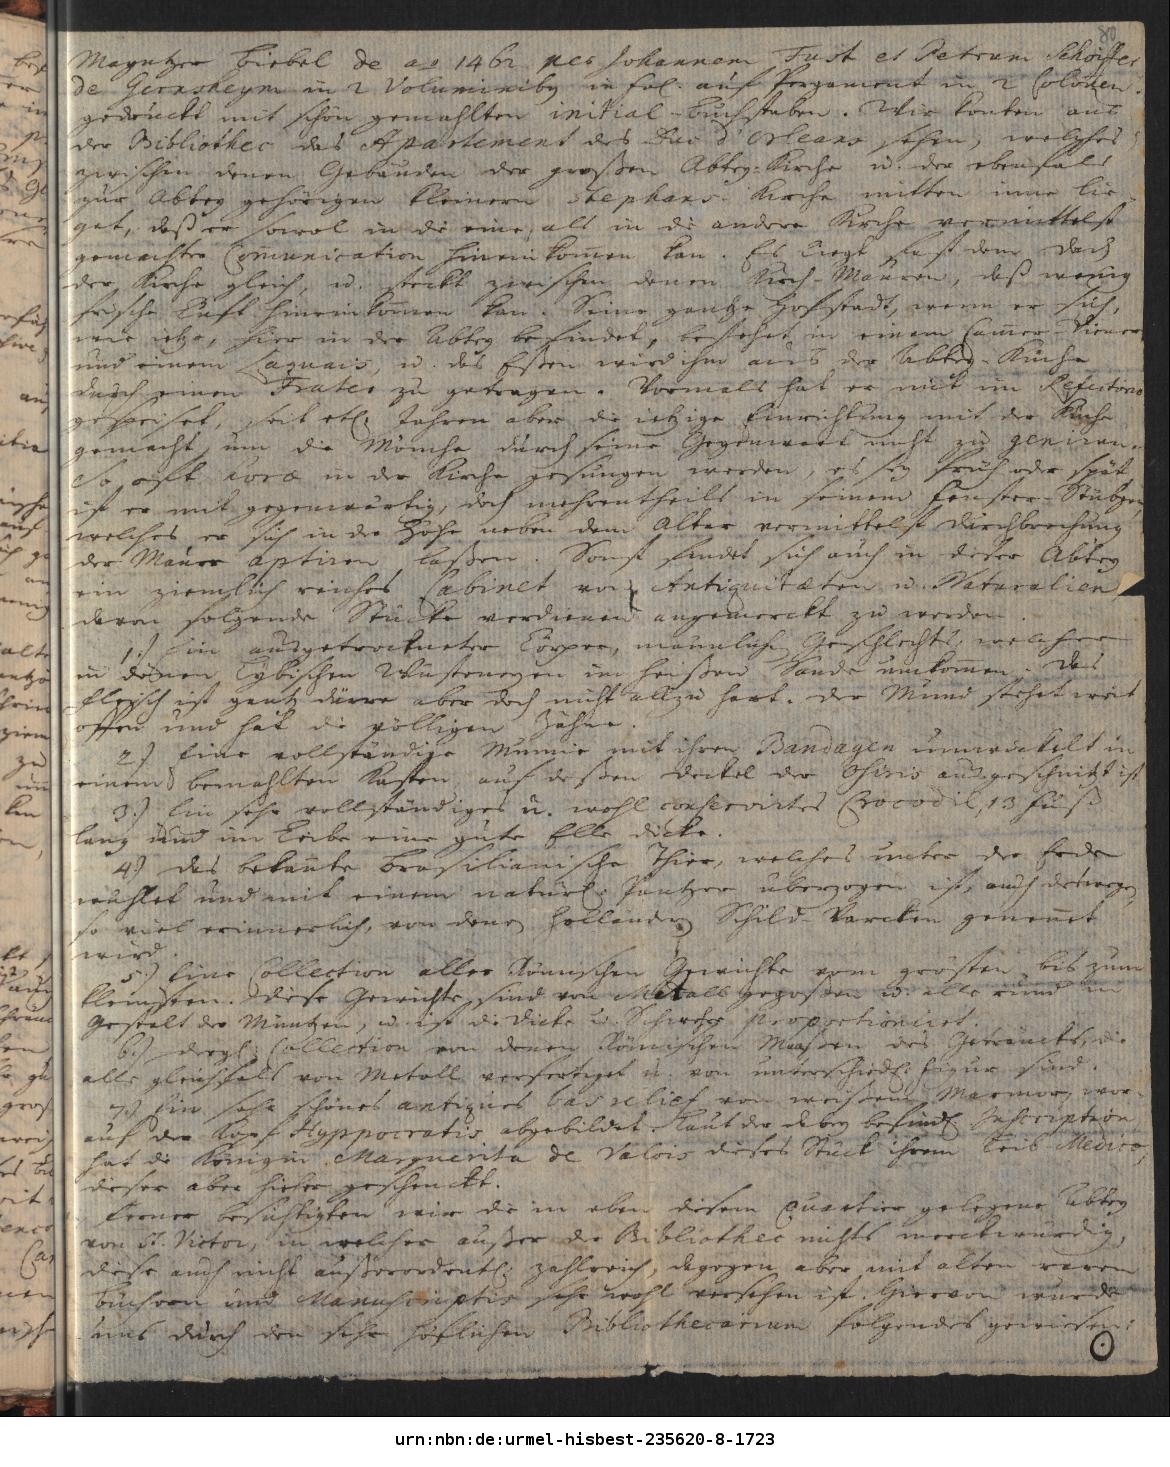 80
Mayntzer Biebel de ao 1462 per Johannem Fust et Petrum Schöiffer
de Gernsheym in 2 Voluminibq in fol. auf Pergament in 2 Colonen
gedruckt mit schön gemahlten initial-Buchstaben. Wir konten aus
der Bibliothec das Apartement des Duc d'Orleans sehen, welches
zwischen denen Gebäuden der großen Abtey-Kirche u. der ebenfals
zur Abtey gehörigen kleinern Stephans-Kirche mitten inne lie-
get, daß er sowol in die eine, als in die andere Kirche vermittelst
gemachter Communication hineinkommen kan. Es liegt fast dem Dach
der Kirche gleich, u. steckt zwischen denen Kirch-Mauren, daß wenig
frische Luft hineinkommen kan. Seine gantze Hofstadt, wenn er sich,
wie ietzo, hier in der Abtey befindet, bestehet in einem Cammer-Diener
und einem Laquais, u. das Eßen wird ihm aus der Abtey-Küche
durch einen Frater zu getragen. Vormals hat er mit im Refectorio
gespeiset, seit etl. Jahren aber die ietzige Einrichtung mit der Küche
gemacht um die Mönche durch seine Gegenwart nicht zu geniren.
So oft Horæ in der Kirche gesungen werden, es sey früh oder spät
ist er mit gegenwärtig, doch mehrentheils in seinem Fenster-Stübgen,
welches er sich in der Höhe neben dem Altar vermittelst Durchbrechung
der Mauer aptiren laßen. Sonst findet sich auch in dieser Abtey
ein ziemlich reiches Cabinet von Antiquitæten u. Naturalien
davon folgende Stücke verdienen angemerckt zu werden.
1.) Ein ausgetrockneter Cörper, männlich Geschlechts, welcher
in denen Lybischen Wüsteneyen im heißen Sande umkommen. Das
Fleisch ist gantz dürre aber doch nicht allzu hart. Der Mund stehet weit
offen und hat die völligen Zähne.
2.) Eine vollständige Mumie mit ihren Bandagen umwickelt in
einem bemahlten Kasten, auf deßen Deckel der Osiris ausgeschnitzt ist
3.) Ein sehr vollständiges u. wohl conservirtes Crocodil, 13 Fuß
lang und im Leibe eine gute Elle dicke.
4.) das bekante Brasilianische Thier, welches unter der Erde
wühlet und mit einem natürl. Pantzer überzogen ist, auch deswegen,
so viel erinnerlich, von denen Holländern Schild-Varcken genennet
wird.
5.) Eine Collection aller Römischen Gewichte vom grösten bis zum
kleinsten. Diese Gewichte sind von Metall gegoßen u. alle rund in
Gestalt der Müntzen, u. ist die Dicke u. Schwehre proportioniret.
6.) dergl. Collection von denen Römischen Maaßen des Geträncks, die
alle gleichfals von Metall verfertiget u. von unterschiedl. Figur sind.
7.) Ein sehr schönes antiques bas relief von weißem Marmor, wor-
auf der Kopf Hyppocratis abgebildet. Laut der dabey befindl. Inscription
hat die Königin Marguerita de Valois dieses Stück ihrem Leib-Medico,
dieser aber hieher geschenckt.
Ferner besichtigten wir die in eben diesem Quartier gelegene Abtey
von St. Victor, in welcher außer der Bibliothec nichts merckwürdig,
diese auch nicht außerordentl. zahlreich, dagegen aber mit alten raren
Büchern und Manuscriptis sehr wohl versehen ist. Hiervon wurde
uns durch den sehr höflichen Bibliothecarium folgendes gewiesen:
urn:nbn:de:urmel-hisbest-235620-8-1723